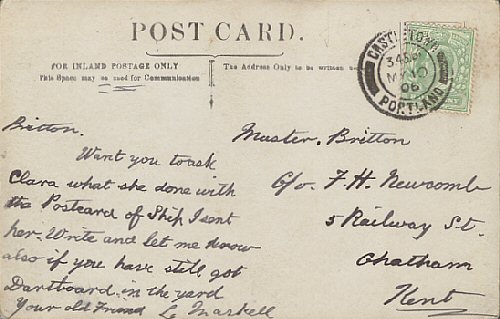 POST CARD.
FOR INLAND POSTAGE ONLY
This Space may be used for Communication
The Address Only to be written
CASTLETOWN
MY 10
06
PORTLAND
Britton.
Want you to ask
Clara what she done with
the Postcard of Ship I sent
her. Write and let me know
also if you have still got
Dartboard in the yard
Your old Friend
Master. Britton
C/o. F. H. Newcomb
5 Railway St.
Chatham
Kent